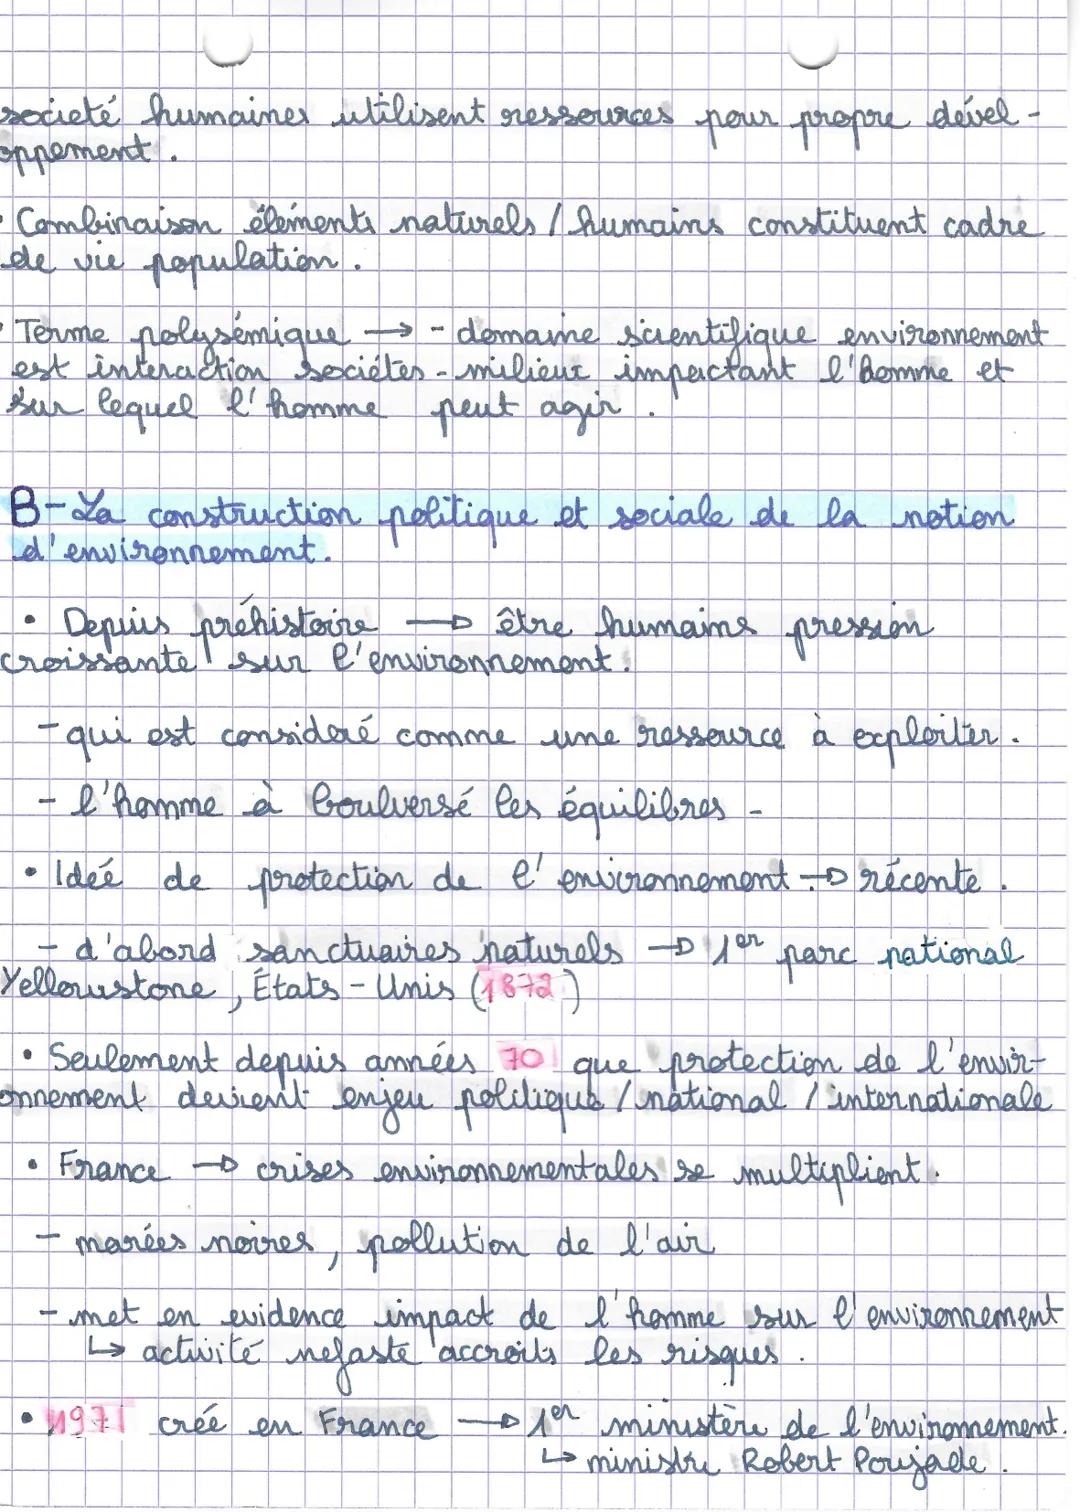 societé humaines utilisent ressources pour propre dével-
oppement.
- Combinaison éléments naturels / humains constituent cadre
de vie population.
• Terme polysémique → - domaine scientifique environnement
est interaction sociétés - milieux impactant l'homme et
sur lequel l'homme peut agir.
B - La construction politique et sociale de la notion
d'environnement.
• Depuis préhistoire → être humains pression
croissante sur l'environnement.
- qui est consideré comme une ressource à exploiter.
- l'homme à boulversé les équilibres -
• Ideé de protection de l'environnement → récente.
- d'abord sanctuaires naturels → 1er parc national
Yellowstone, États-Unis (1872)
• Seulement depuis années 70 que protection de l'envir-
onnement devient enjeu politique / national / internationale
• France → crises environnementales se multiplient.
- marées noires, pollution de l'air
- met en evidence impact de l'homme sur l'environnement
↳ activité nefaste accroits les risques.
• 1971 créé en France → 1er ministère de l'environnement.
↳ ministre Robert Poujade.